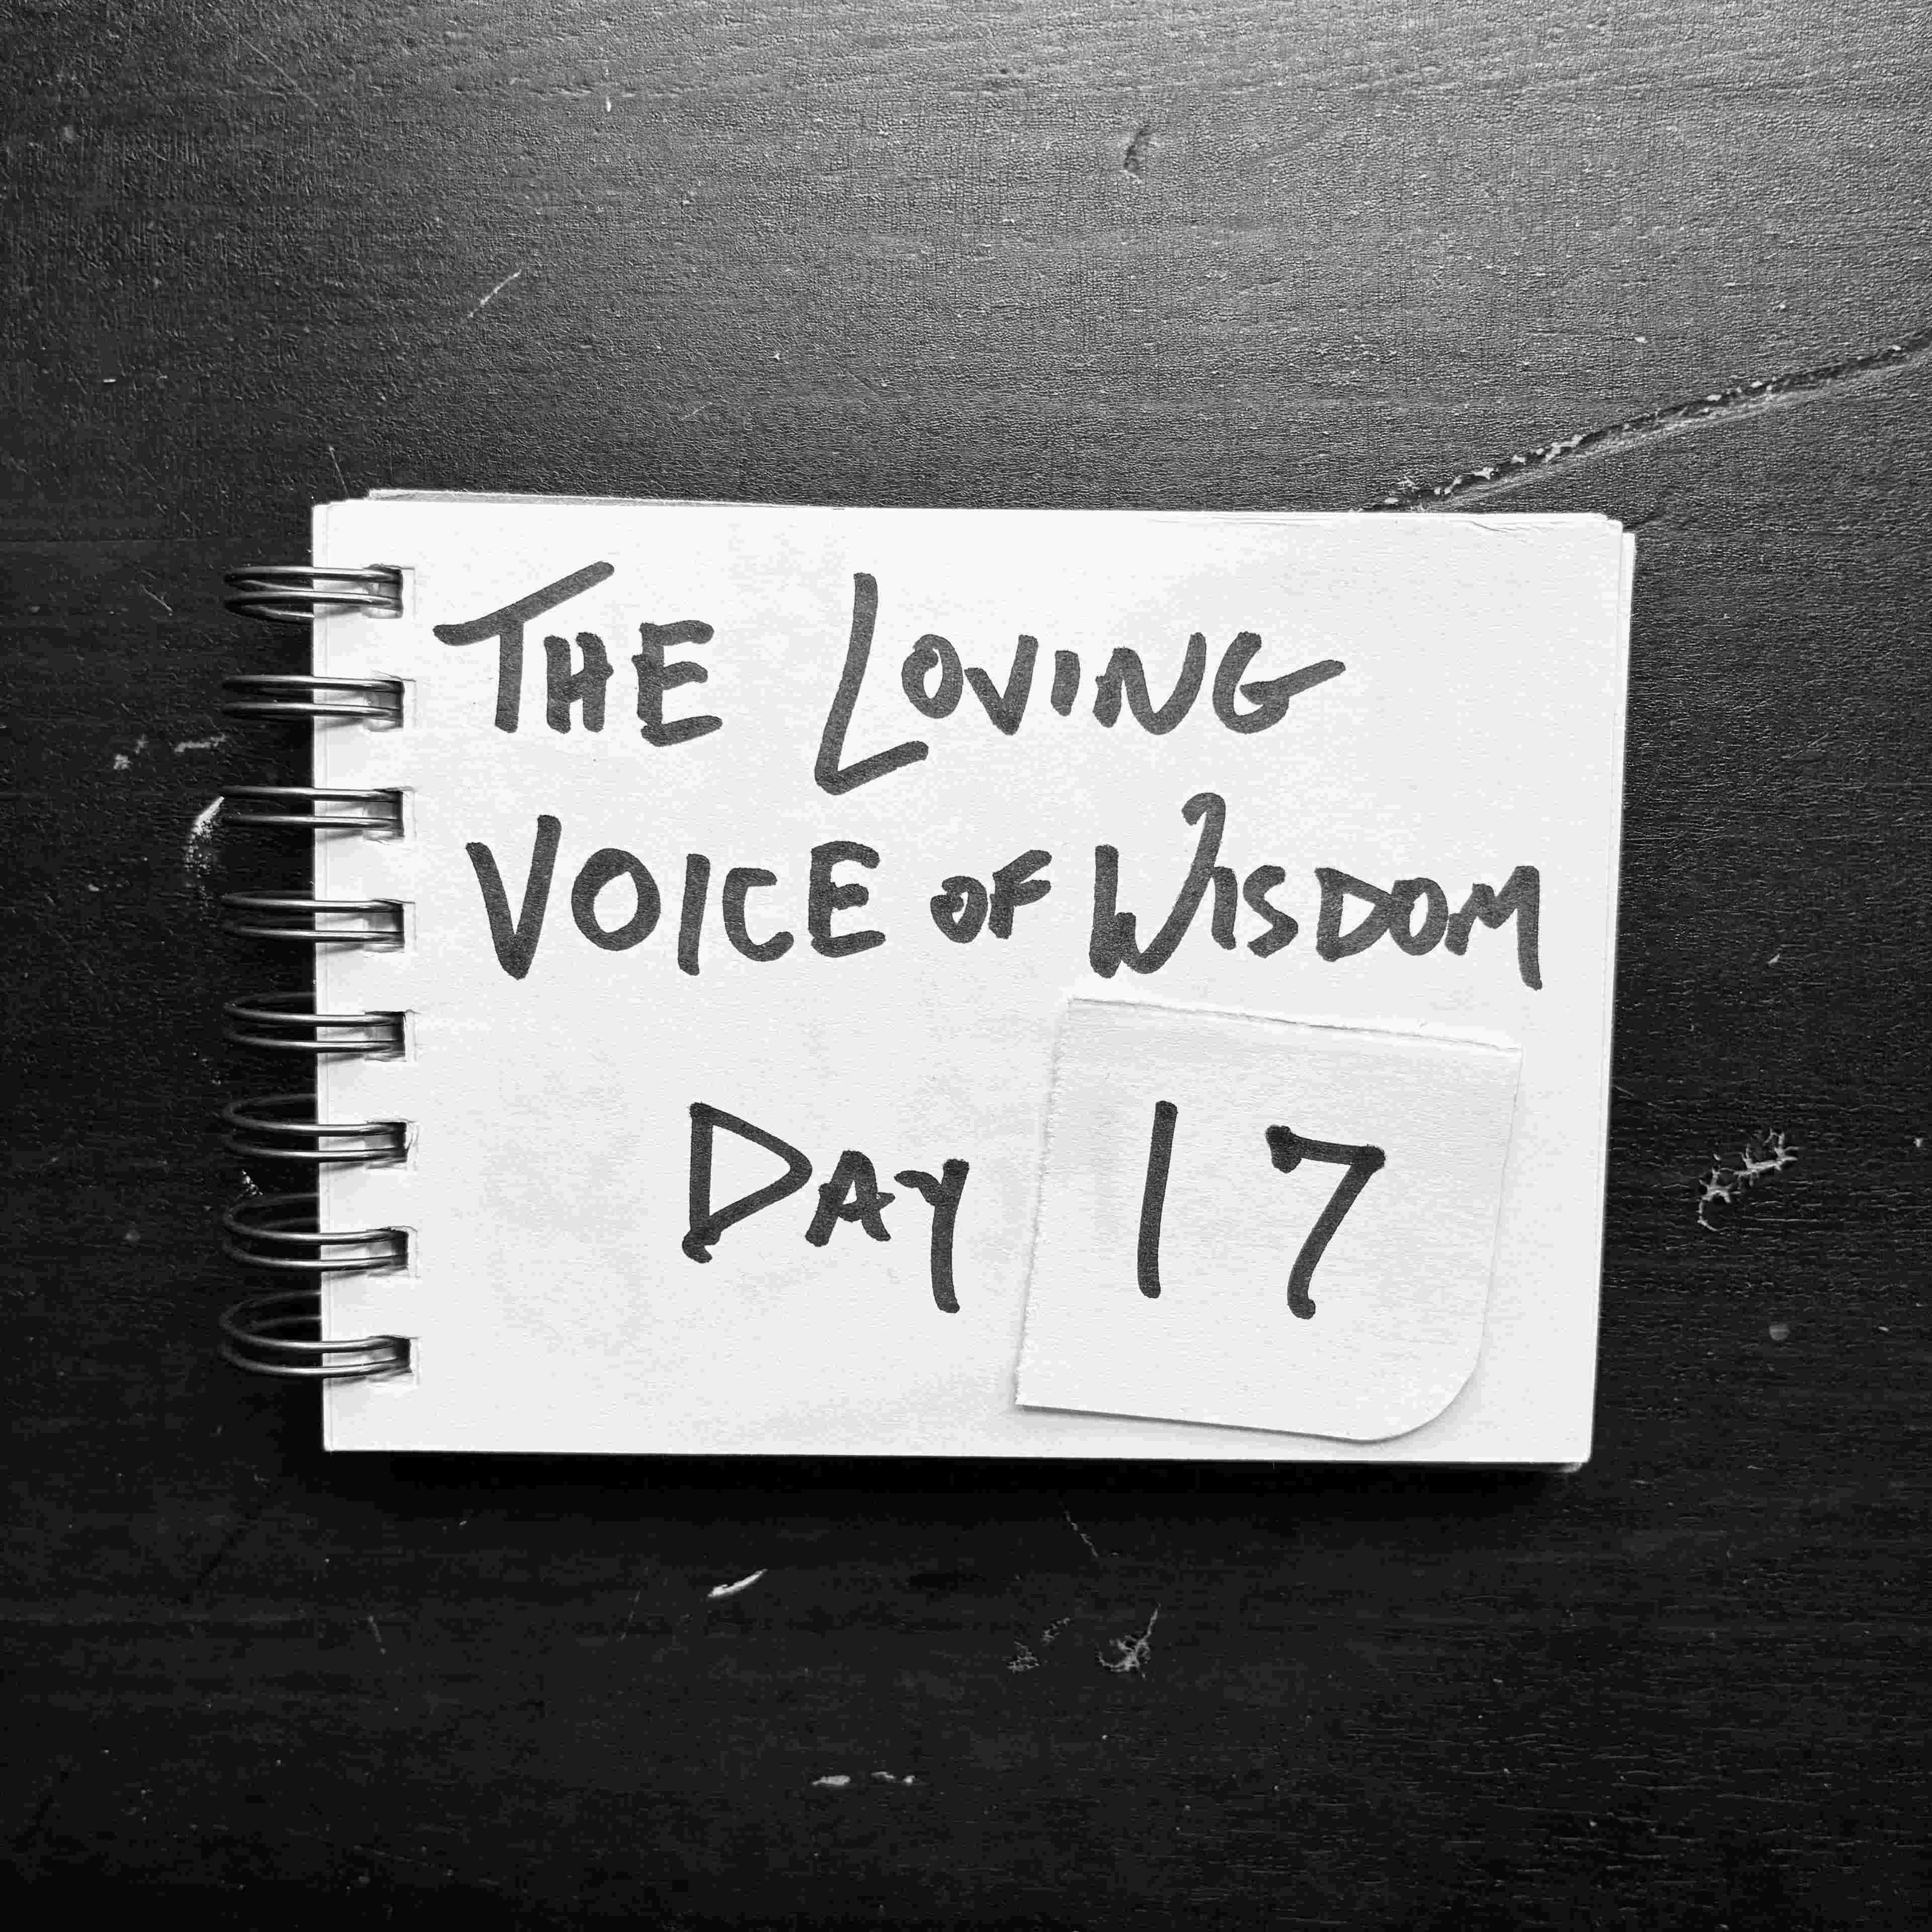 THE LOVING
VOICE OF WISDOM
DAY 17